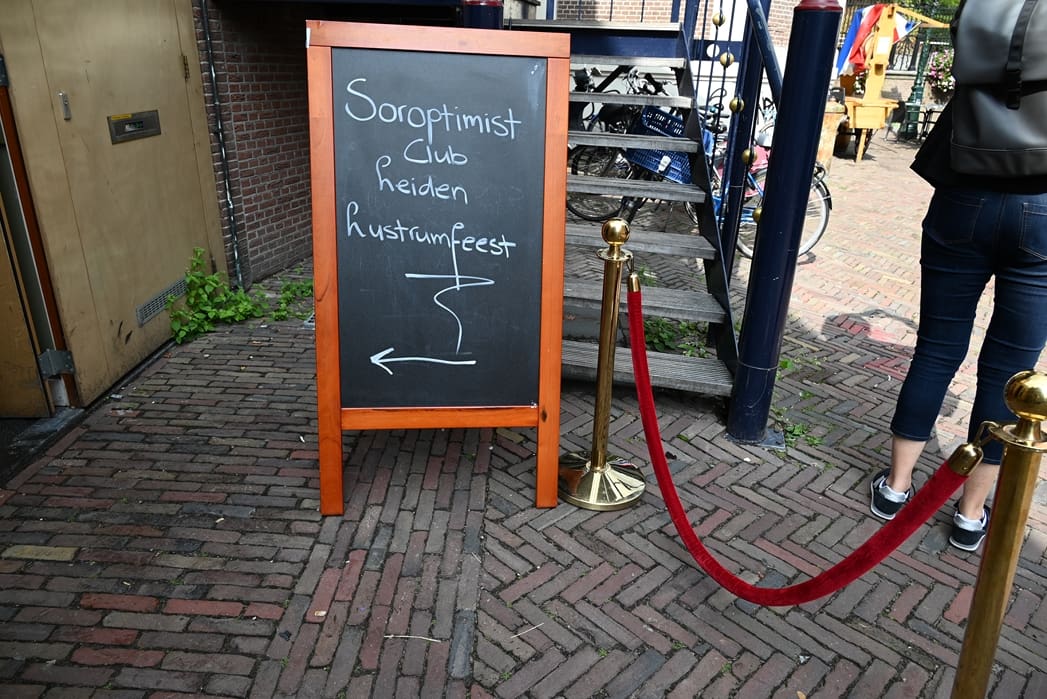 Soroptimist
Club
Leiden
Lustrumfeest